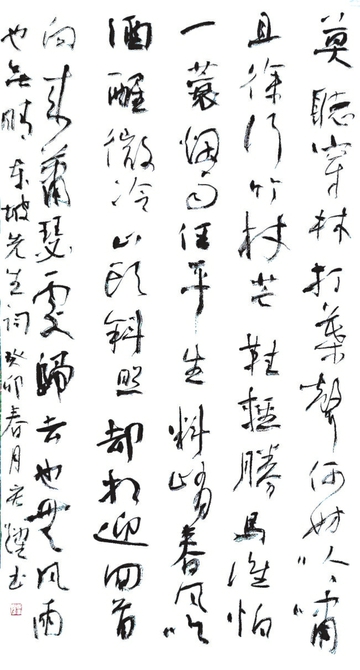 莫聽穿林打葉聲何妨吟嘯
且徐行竹杖芒鞋輕勝馬誰怕
一蓑烟雨任平生料峭春風吹
酒醒微冷山頭斜照却相迎回首
向来蕭瑟處歸去也無風雨
也無晴 東坡先生詞癸卯春月